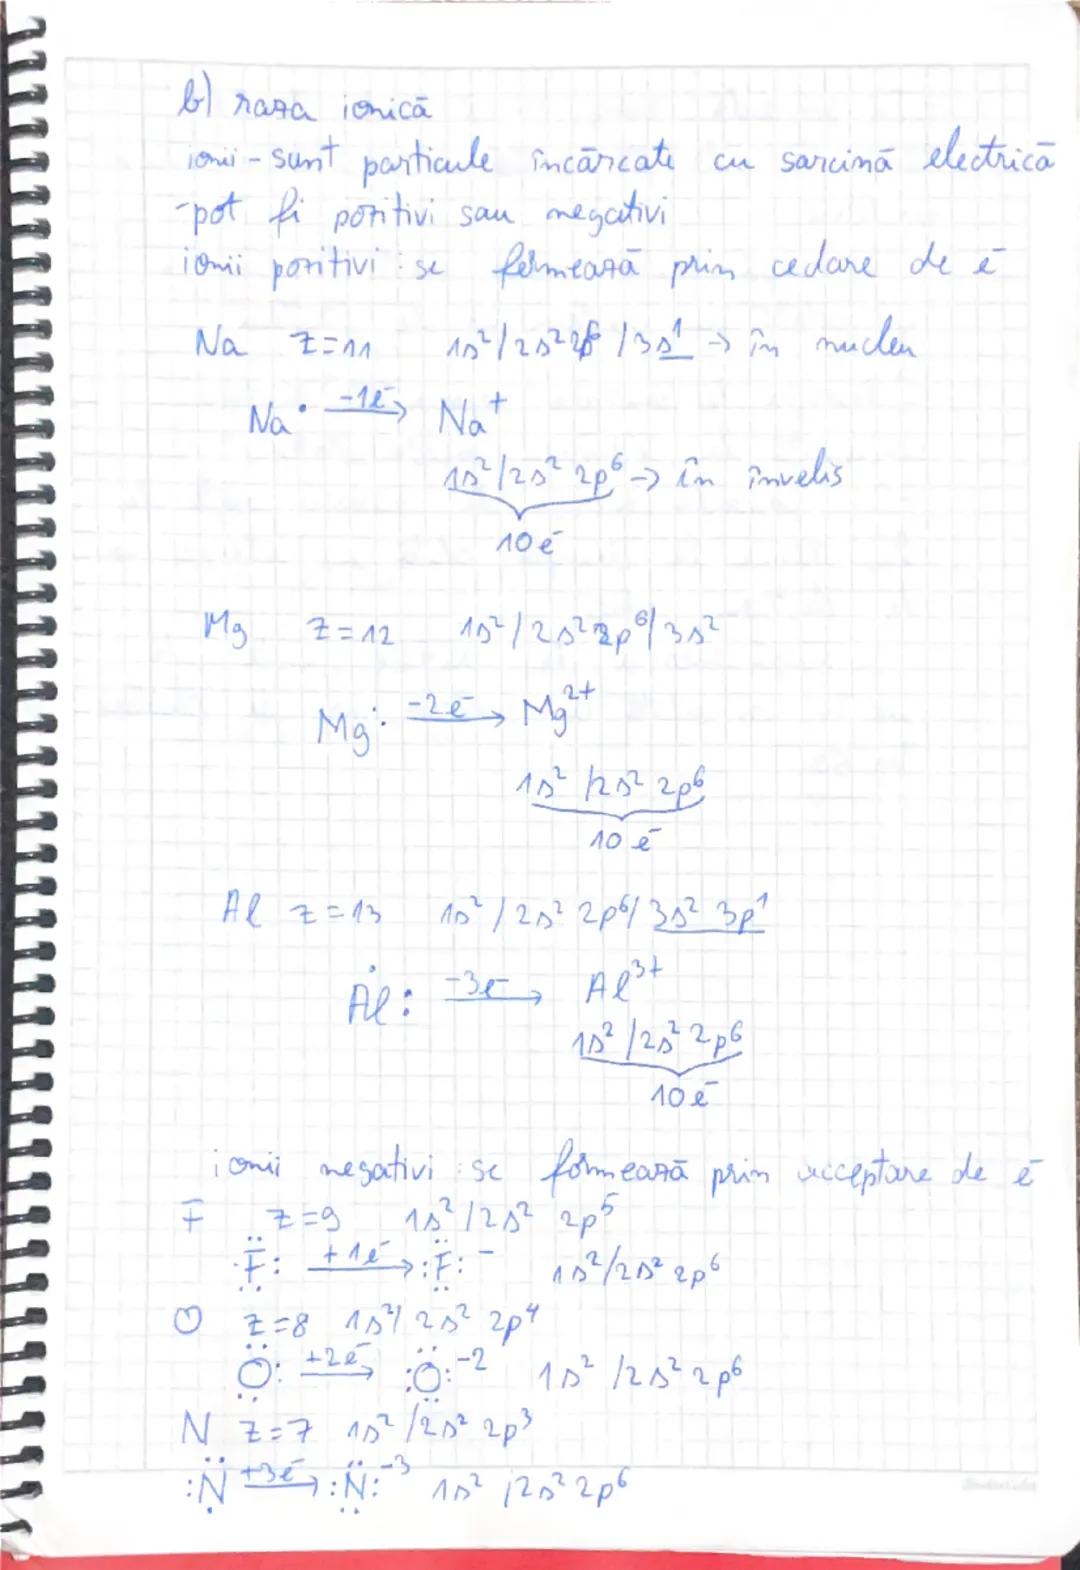 b) raza ionică
ionii - sunt particule încărcate cu sarcină electrică
-pot fi pozitivi sau negativi
ionii pozitivi: se formează prin cedare de e⁻
Na Z=11 1s²/2s²2p⁶/3s¹ → în nucleu
Na· -1e⁻→ Na⁺
1s²/2s² 2p⁶ → în înveliș
10 e⁻
Mg Z=12 1s²/2s²2p⁶/3s²
Mg: -2e⁻→ Mg²⁺
1s²/2s² 2p⁶
10 e⁻
Al Z=13 1s²/2s² 2p⁶/3s² 3p¹
Al: -3e⁻→ Al³⁺
1s²/2s² 2p⁶
10 e⁻
ionii negativi: se formează prin acceptare de e⁻
F Z=9 1s²/2s² 2p⁵
·F: +1e⁻→ :F:⁻ 1s²/2s² 2p⁶
O Z=8 1s²/2s² 2p⁴
O: +2e⁻→ :O:⁻² 1s²/2s² 2p⁶
N Z=7 1s²/2s² 2p³
:N +3e⁻→ :N:⁻³ 1s²/2s² 2p⁶